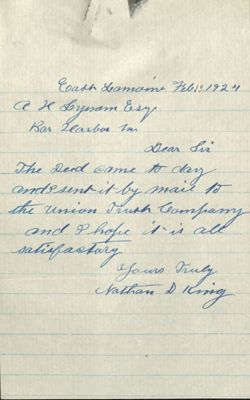 East Lamoine Feb 1st 1924
A H Lynam Esq.
Bar Harbor Me.
Dear Sir
The Deed came to day
and I sent it by mail to
the Union Trust Company
and I hope it is all
satisfactory
Yours Truly
Nathan D King